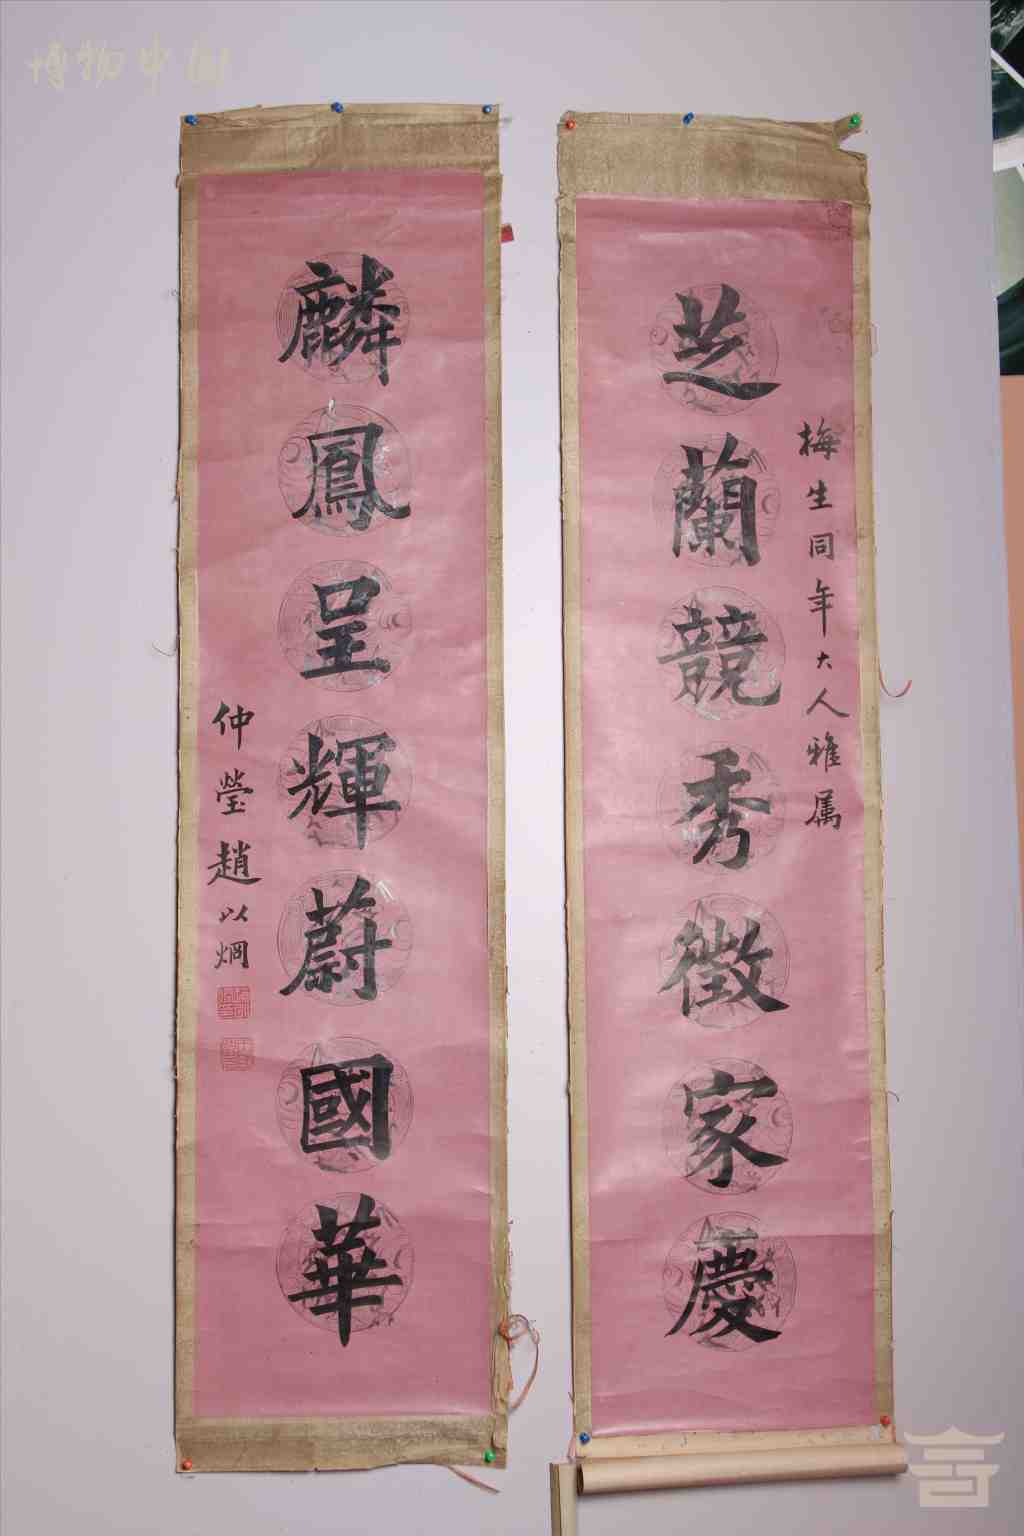 博物中国
梅生同年大人雅属
芝蘭競秀徵家慶
麟鳳呈輝蔚國華
仲瑩趙以烱